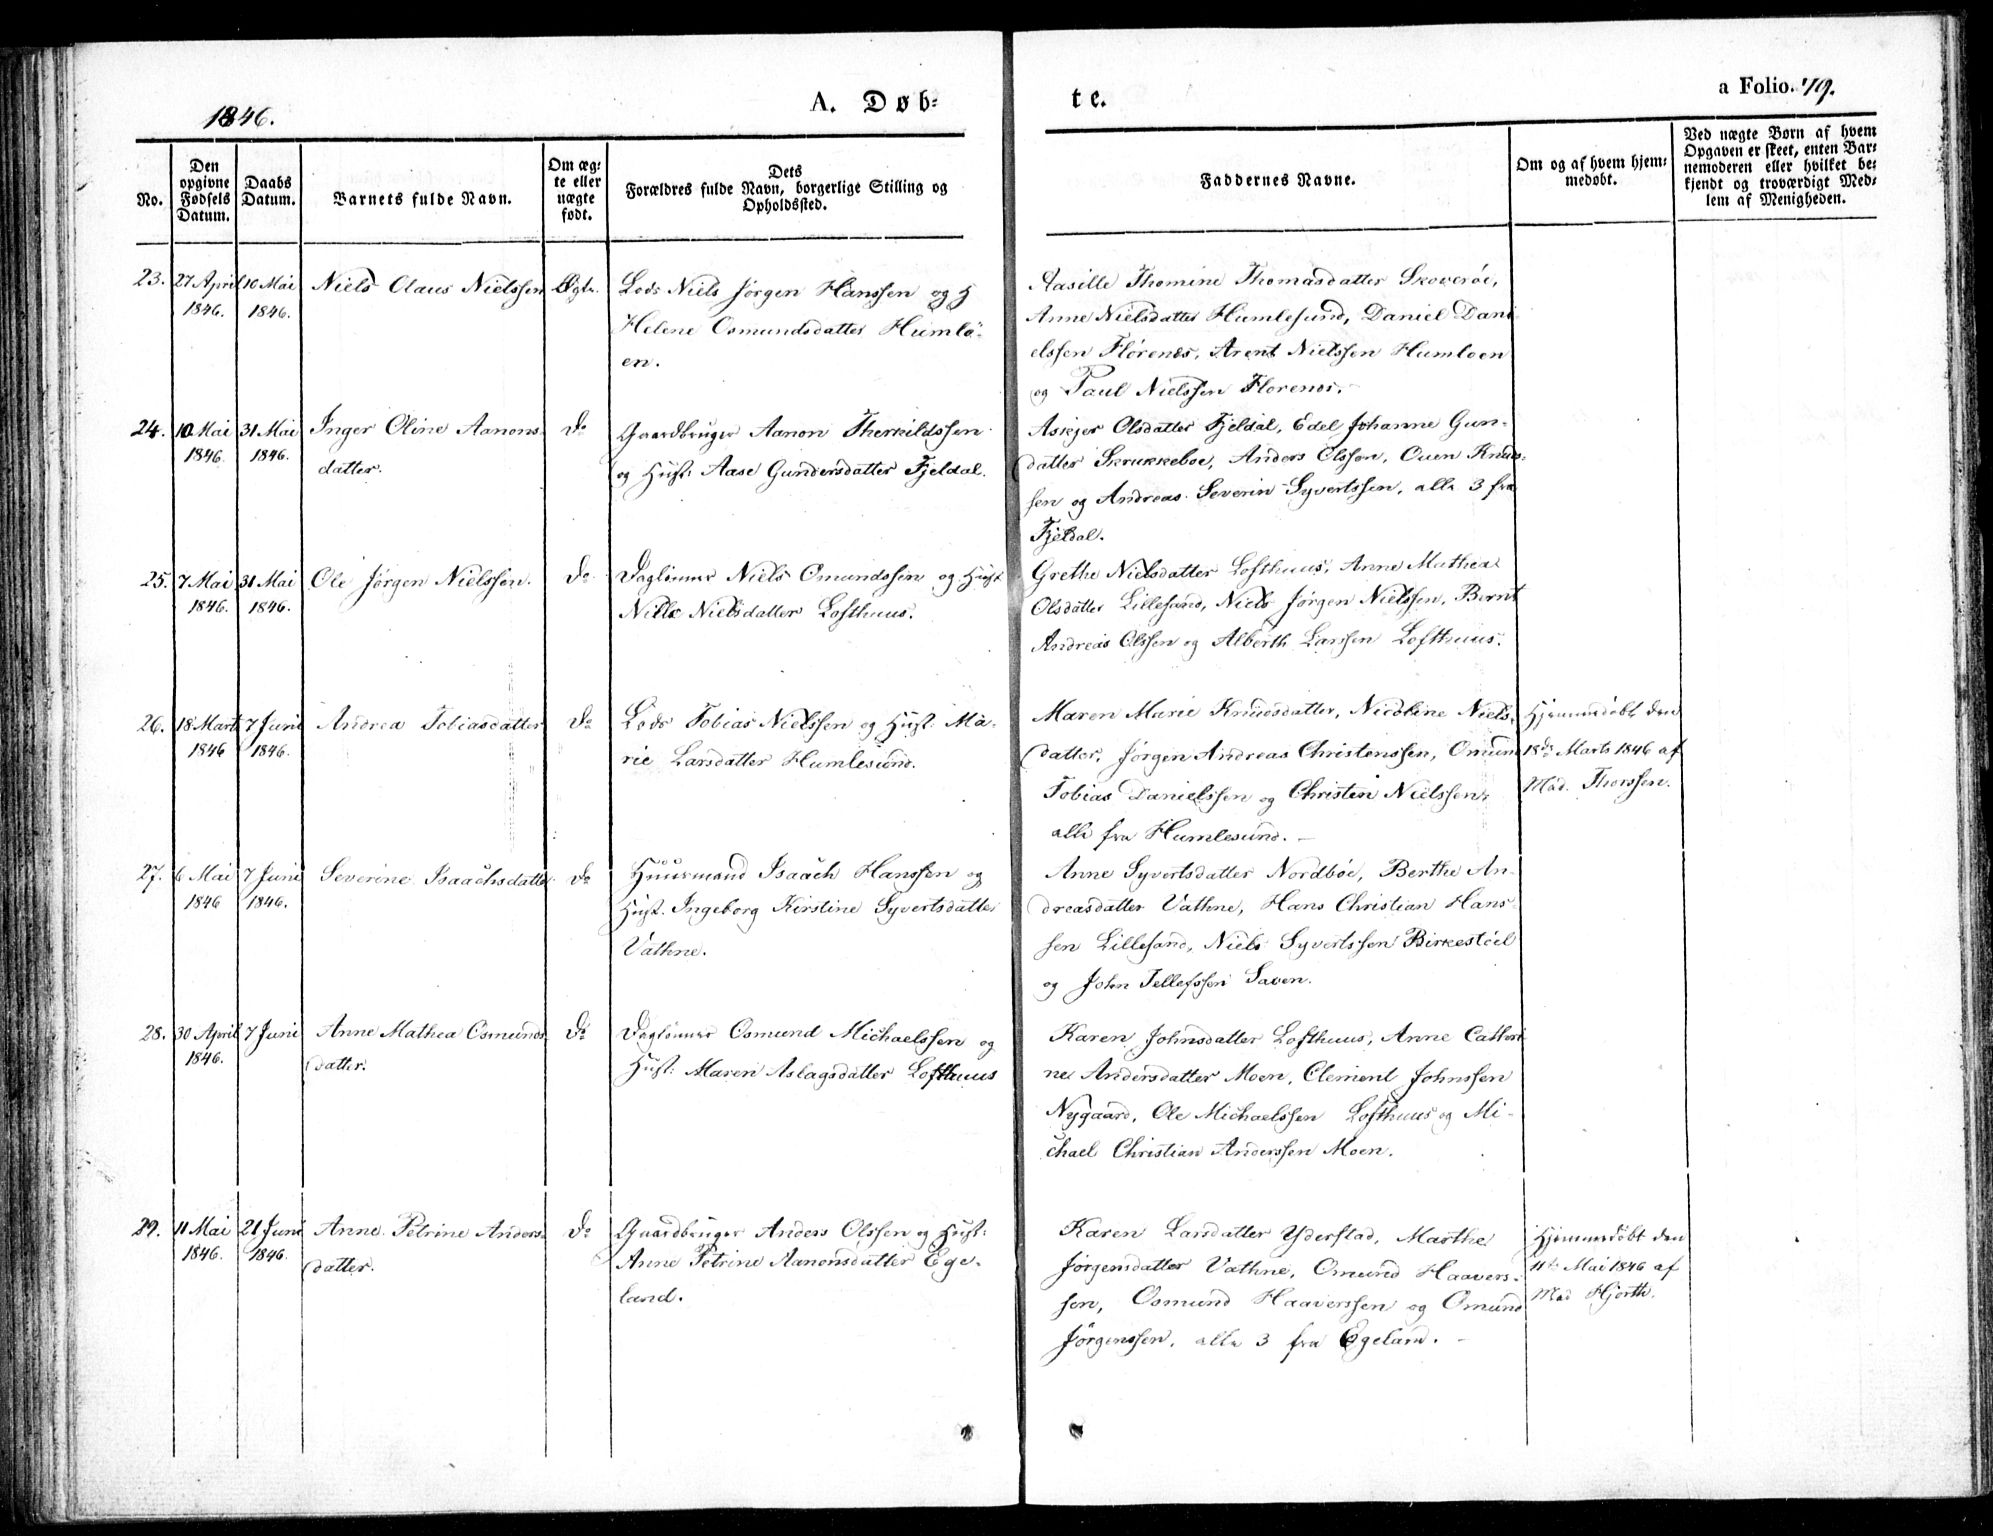 1846.
A. Døb-
te.
a Folio. 79.
No.
Den
opgivne
Fødsels
Datum.
Daabs
Datum.
Barnets fulde Navn.
Om æg-
te eller
nægte
født.
Dets
Forældres fulde Navn, borgerlige Stilling og
Opholdssted.
Faddernes Navne.
Om og af hvem hjem-
medøbt.
Ved nægte Børn af hvem
Opgaven er skeet, enten Bar-
nemoderen eller hvilket be-
kjendt og troværdigt Med-
lem af Menigheden.
23.
27 April
1846.
10 Mai
1846.
Niels Claus Nielssen
Ægte.
Lods Niels Jørgen Hanssen og H
Helene Osmundsdatter Humlö-
en.
Aasille Thomine Thomasdatter Skoverøe,
Anne Nielsdatter Humlesund, Daniel Dani
elssen Flörenes, Arent Nielssen Humloen
og Paul Nielssen Florenes.
24.
10 Mai
1846.
31 Mai
1846.
Inger Oline Aanons-
datter.
Do
Gaardbruger Aanon Therkildssen
og Hust: Aase Gundersdatter Fjeldal.
Askjer Olsdatter Fjeldal, Edel Johanne Gun-
datter Skrukkeboe, Anders Olssen, Ouen Knuds-
sen og Andreas Severin Syvertssen, alle 3 fra
Fjeldal.
25.
7 Mai
1846.
31 Mai
1846.
Ole Jørgen Nielssen.
Do
Daglönner Niels Omundssen og Hust
Nille Nielsdatter Lofthuus.
Grethe Nielsdatter Lofthuus, Anne Mathea
Olsdatter Lillesand, Niels Jørgen Nielssen, Bernt
Andreas Olssen og Alberth Larssen Lofthuus.
26.
18 Marts
1846
7 Juni
1846.
Andrea Tobiasdatter
Do
Lods Tobias Nielssen og Hust. Ma-
rie Larsdatter Humlesund.
Maren Marie Knudsdatter, Nicoline Niels-
datter, Jørgen Andreas Christenssen, Omund
Tobias Danielssen og Christen Nielssen,
alle fra Humlesund. —
Hjemmedøbt den
18de Marts 1846 af
Mad. Thorssen.
27.
6 Mai
1846
7 Juni
1846.
Severine Isaachsdatter
Do
Huusmand Isaach Hanssen og
Hust. Ingeborg Kirstine Syvertsdatter
Vathne.
Anne Syvertsdatter Nordböe, Berthe An-
dreasdatter Vathne, Hans Christian Hans-
sen Lillesand, Niels Syvertssen Birkestöel
og John Tellefssen Saven.
28.
30 April
1846.
7 Juni
Anne Mathea Osmunds
datter.
Do
Daglönner Osmund Michaelssen og
Hust: Maren Aslagsdatter Lofthuus
Karen Johnsdatter Lofthuus, Anne Cathri
ne Andersdatter Moen, Clement Johnssen
Nygaard, Ole Michaelssen Lofthuus og Mi-
chael Christian Anderssen Moen.
29.
11 Mai
1846.
21 Juni
1846.
Anne Petrine Anders
datter.
Do
Gaardbruger Anders Olssen og Hust:
Anne Petrine Aanonsdatter Ege-
land.
Karen Larsdatter Yderstad, Marthe
Jørgensdatter Vathne, Omund Haavers-
sen, Osmund Haaverssen og Omund
Jørgenssen, alle 3 fra Egeland. —
Hjemmedøbt den
11te Mai 1846 af
Mad Hjorth.